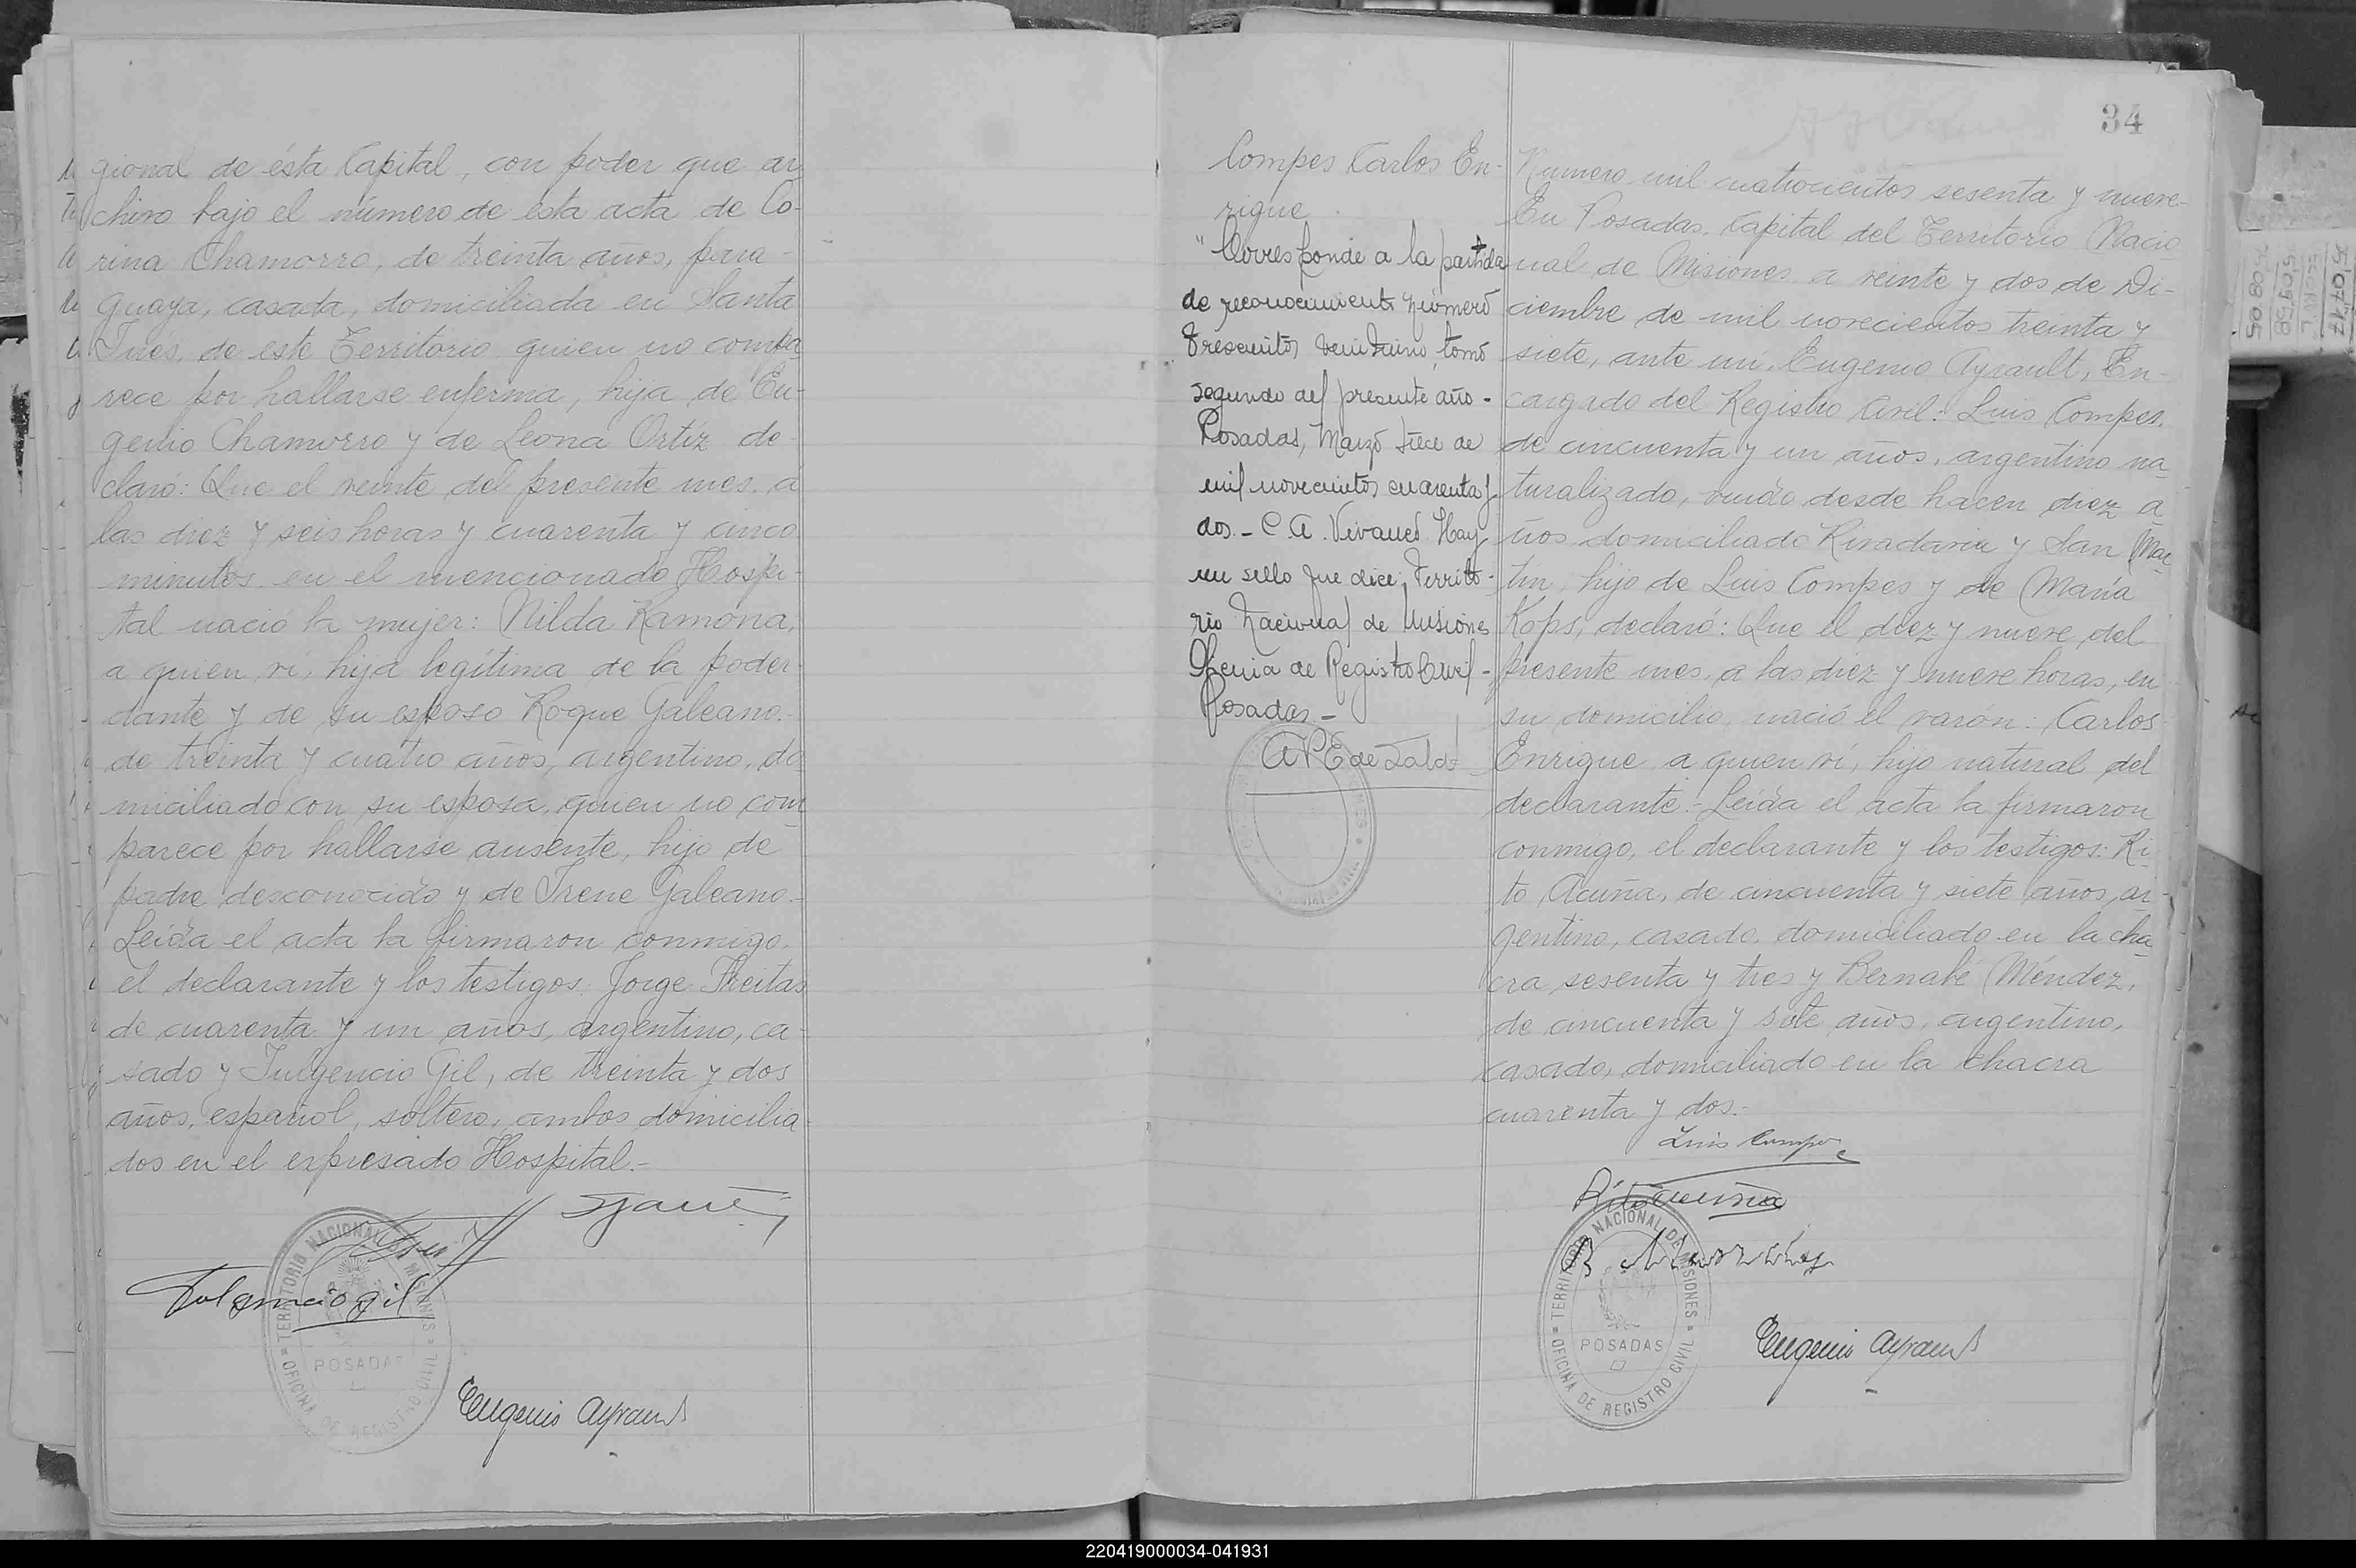 gional de ésta Capital, con poder que ar
chivo bajo el número de esta acta de Co-
rina Chamorro, de treinta años, para-
guaya, casada, domiciliada en Santa
Inés, de este Territorio, quien no compa
rece por hallarse enferma, hija de Eu-
genio Chamorro y de Leona Ortíz de-
claró: Que el veinte del presente mes, a
las diez y seis horas y cuarenta y cinco
minutos en el mencionado Hospi-
tal nació la mujer: Nilda Ramona,
a quien ví, hija legítima de la poder-
dante y de su esposo Roque Galeano.-
de treinta y cuatro años, argentino, do
miciliado con su esposa, quien no com
parece por hallarse ausente, hijo de
padre desconocido y de Irene Galeano.-
Leída el acta la firmaron conmigo,
el declarante y los testigos Jorge Freitas
de cuarenta y un años, argentino, ca-
sado y Fulgencio Gil, de treinta y dos
años, español, soltero, ambos domicilia
dos en el expresado Hospital.-
Fulgencio gil
TERRITORIO NACIONAL DE MISIONES
OFICINA DE REGISTRO CIVIL
POSADAS
Eugenio Ayrault
34
Compes Carlos En-
rique
"Corresponde a la partida
de reconocimiento número
Trescientos veintiuno, tomo
segundo del presente año -
Posadas, Marzo trece de
mil novecientos cuarenta y
dos. - C A. Vivanco. Hay
un sello que dice: Territo-
rio Nacional de Misiones
Oficina de Registro Civil -
Posadas -
Numero mil cuatrocientos sesenta y nueve-
En Posadas, Capital del Territorio Nacio
nal de Misiones a veinte y dos de Di-
ciembre de mil novecientos treinta y
siete, ante mí, Eugenio Ayrault, En-
cargado del Registro Civil: Luis Compes,
de cincuenta y un años, argentino na
turalizado, viudo desde hacen diez a
ños domiciliado Rivadavia y San Mar
tin, hijo de Luis Compes y de María
Kops, declaró: Que el diez y nueve del
presente mes, a las diez y nueve horas, en
su domicilio, nació el varón: Carlos
Enrique, a quien ví, hijo natural del
declarante.- Leída el acta la firmaron
conmigo, el declarante y los testigos: Ri
to Acuña, de cincuenta y siete años, ar-
gentino, casado, domiciliado en la cha
cra sesenta y tres y Bernabé Méndez,
de cincuenta y siete años, argentino,
casado, domiciliado en la chacra
cuarenta y dos.-
Luis Compes
Rito Acuña
TERRITORIO NACIONAL DE MISIONES
OFICINA DE REGISTRO CIVIL
POSADAS
Eugenio Ayrault
220419000034-041931